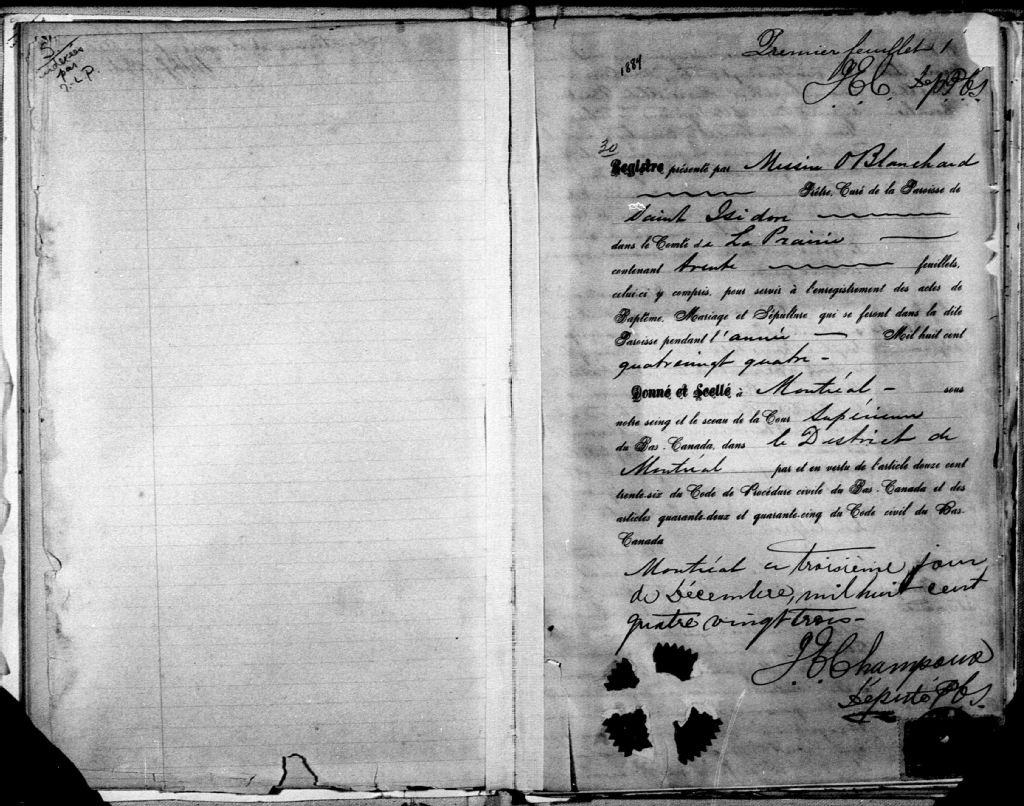 indexées
par
J. L. P.
Premier feuillet 1
1884
J.E.C. Dep. P.C.S.
30
Registre présenté par Messire O Blanchard
Prêtre, Curé de la Paroisse de
Saint Isidore
dans le Comté de La Prairie
contenant trente feuillets,
celui-ci y compris, pour servir à l'enregistrement des actes de
Baptême, Mariage et Sépulture qui se feront dans la dite
Paroisse pendant l'année Mil huit cent
quatrevingt quatre -
Donné et Scellé à Montréal - sous
notre seing et le sceau de la Cour Supérieure
du Bas-Canada, dans le District de
Montréal par et en vertu de l'article douze cent
trente-six du Code de Procédure civile du Bas-Canada et des
articles quarante-deux et quarante-cinq du Code civil du Bas-
Canada
Montréal ce troisième jour
de Décembre, mil huit cent
quatre vingt trois -
J.E. Champoux
Député P.C.S.